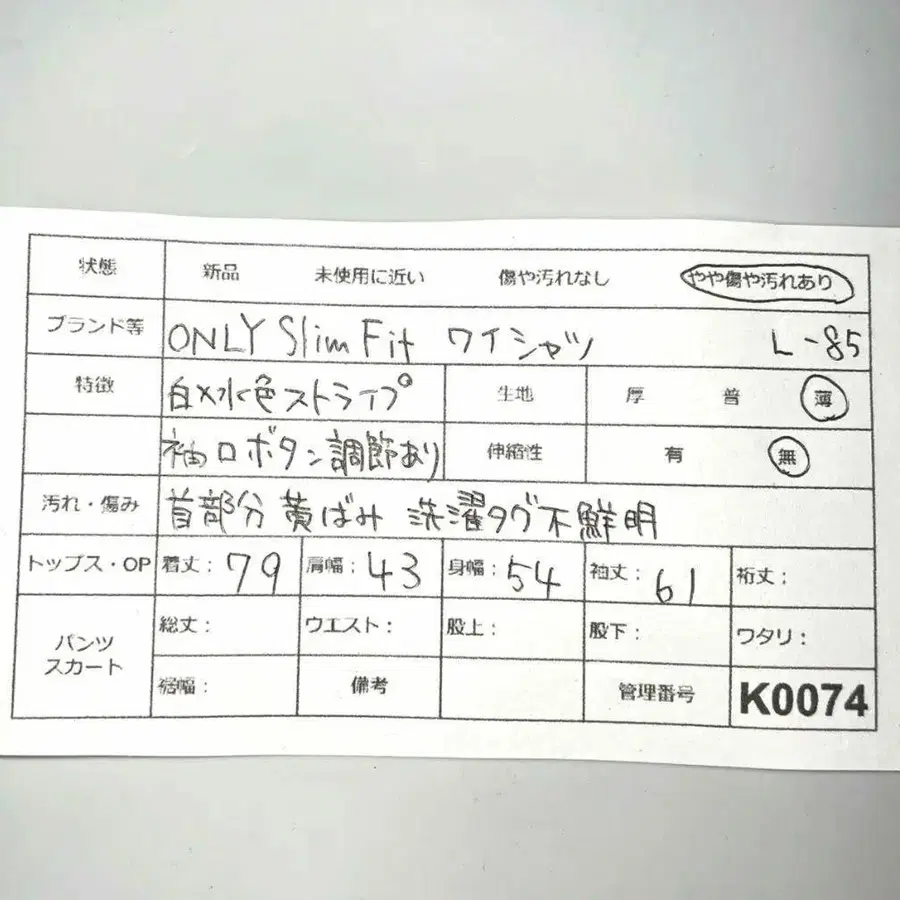 状態 新品 未使用に近い 傷や汚れなし やや傷や汚れあり
ブランド等 ONLY Slim Fit ワイシャツ L-85
特徴 白×水色ストライプ 生地 厚 普 薄
袖口ボタン調節あり 伸縮性 有 無
汚れ・傷み 首部分 黄ばみ 洗濯タグ不鮮明
トップス・OP 着丈：79 肩幅：43 身幅：54 袖丈：61 裄丈：
パンツ スカート 総丈： ウエスト： 股上： 股下： ワタリ：
裾幅： 備考 管理番号 K0074